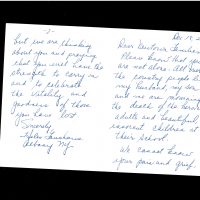 -2-
but we are thinking
about you and praying
that you will have the
strength to carry on
and to celebrate
the vitality and
goodness of those
you have lost
Sincerely,
Albany, NY
Dec 17, 2
Dear Newtown
Please know that you
are not alone. All over
the country people l
my husband, my
and me are mourning
the death of the heroic
adults and beautiful,
innocent children at
their school.
We cannot know
your pain and grief,